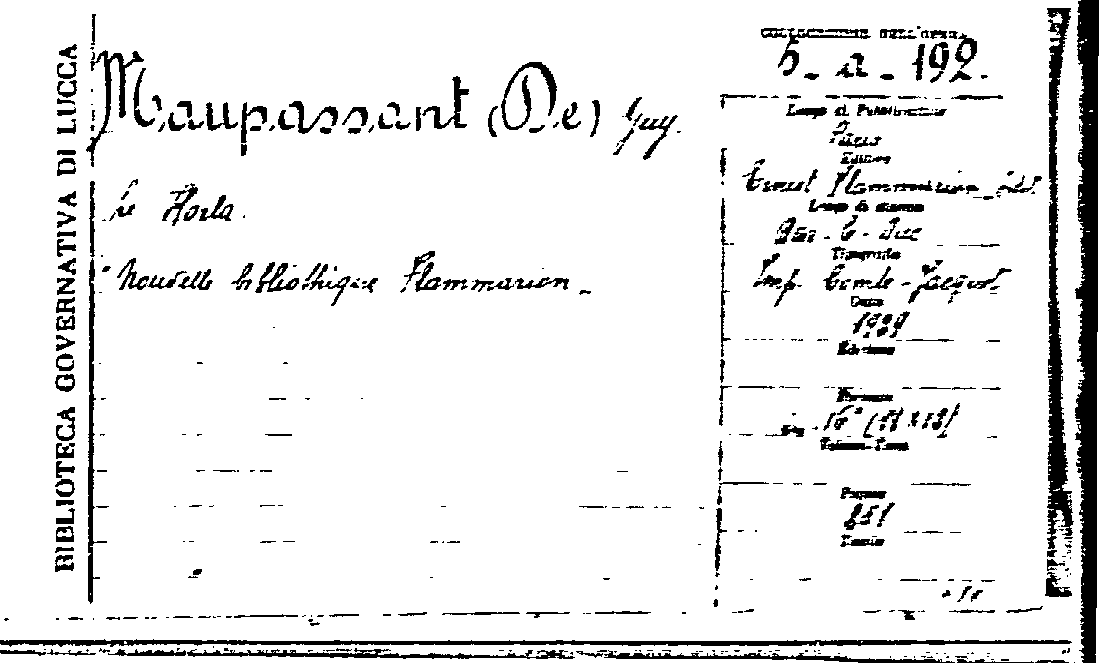 BIBLIOTECA GOVERNATIVA DI LUCCA
COLLOCAZIONE DELL'OPERA
5-a-192.
Maupassant (De) Guy.
Le Horla.
Nouvelle bibliothèque Flammarion_
Luogo di Pubblicazione
Paris
Editore
Ernest Flammarion
Luogo di stampa
Bar-le-Duc
Tipografia
Imp. Comte-Jacquet
Data
1929
Edizione
Formato
16° (11 x 18)
Pagine
251